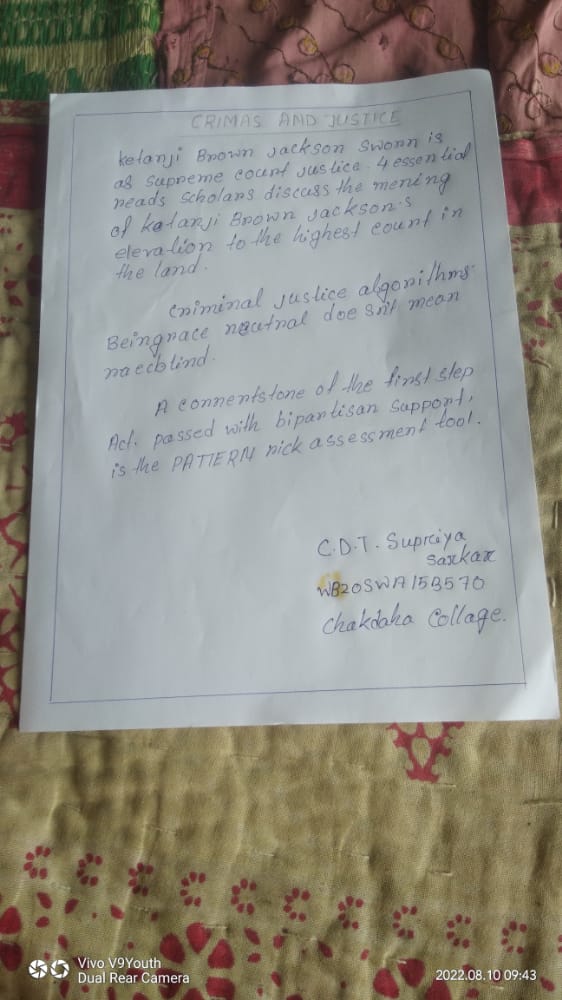 CRIMAS AND JUSTICE
ketanji Brown Jackson Sworn is
as supreme court justice. 4 essential
reads scholars discuss the mening
of katanji Brown Jackson's
elevation to the highest court in
the land.
criminal justice algorithms.
Being race neutral doe sn't mean
raecblind.
A connerstone of the first step
Act. passed with bipartisan support,
is the PATTERN rick assessment tool.
C.D.T. Supriya
Sarkar
WB20SWA15B570
Chakdaha Collage.
Vivo V9Youth
Dual Rear Camera
2022.08.10 09:43